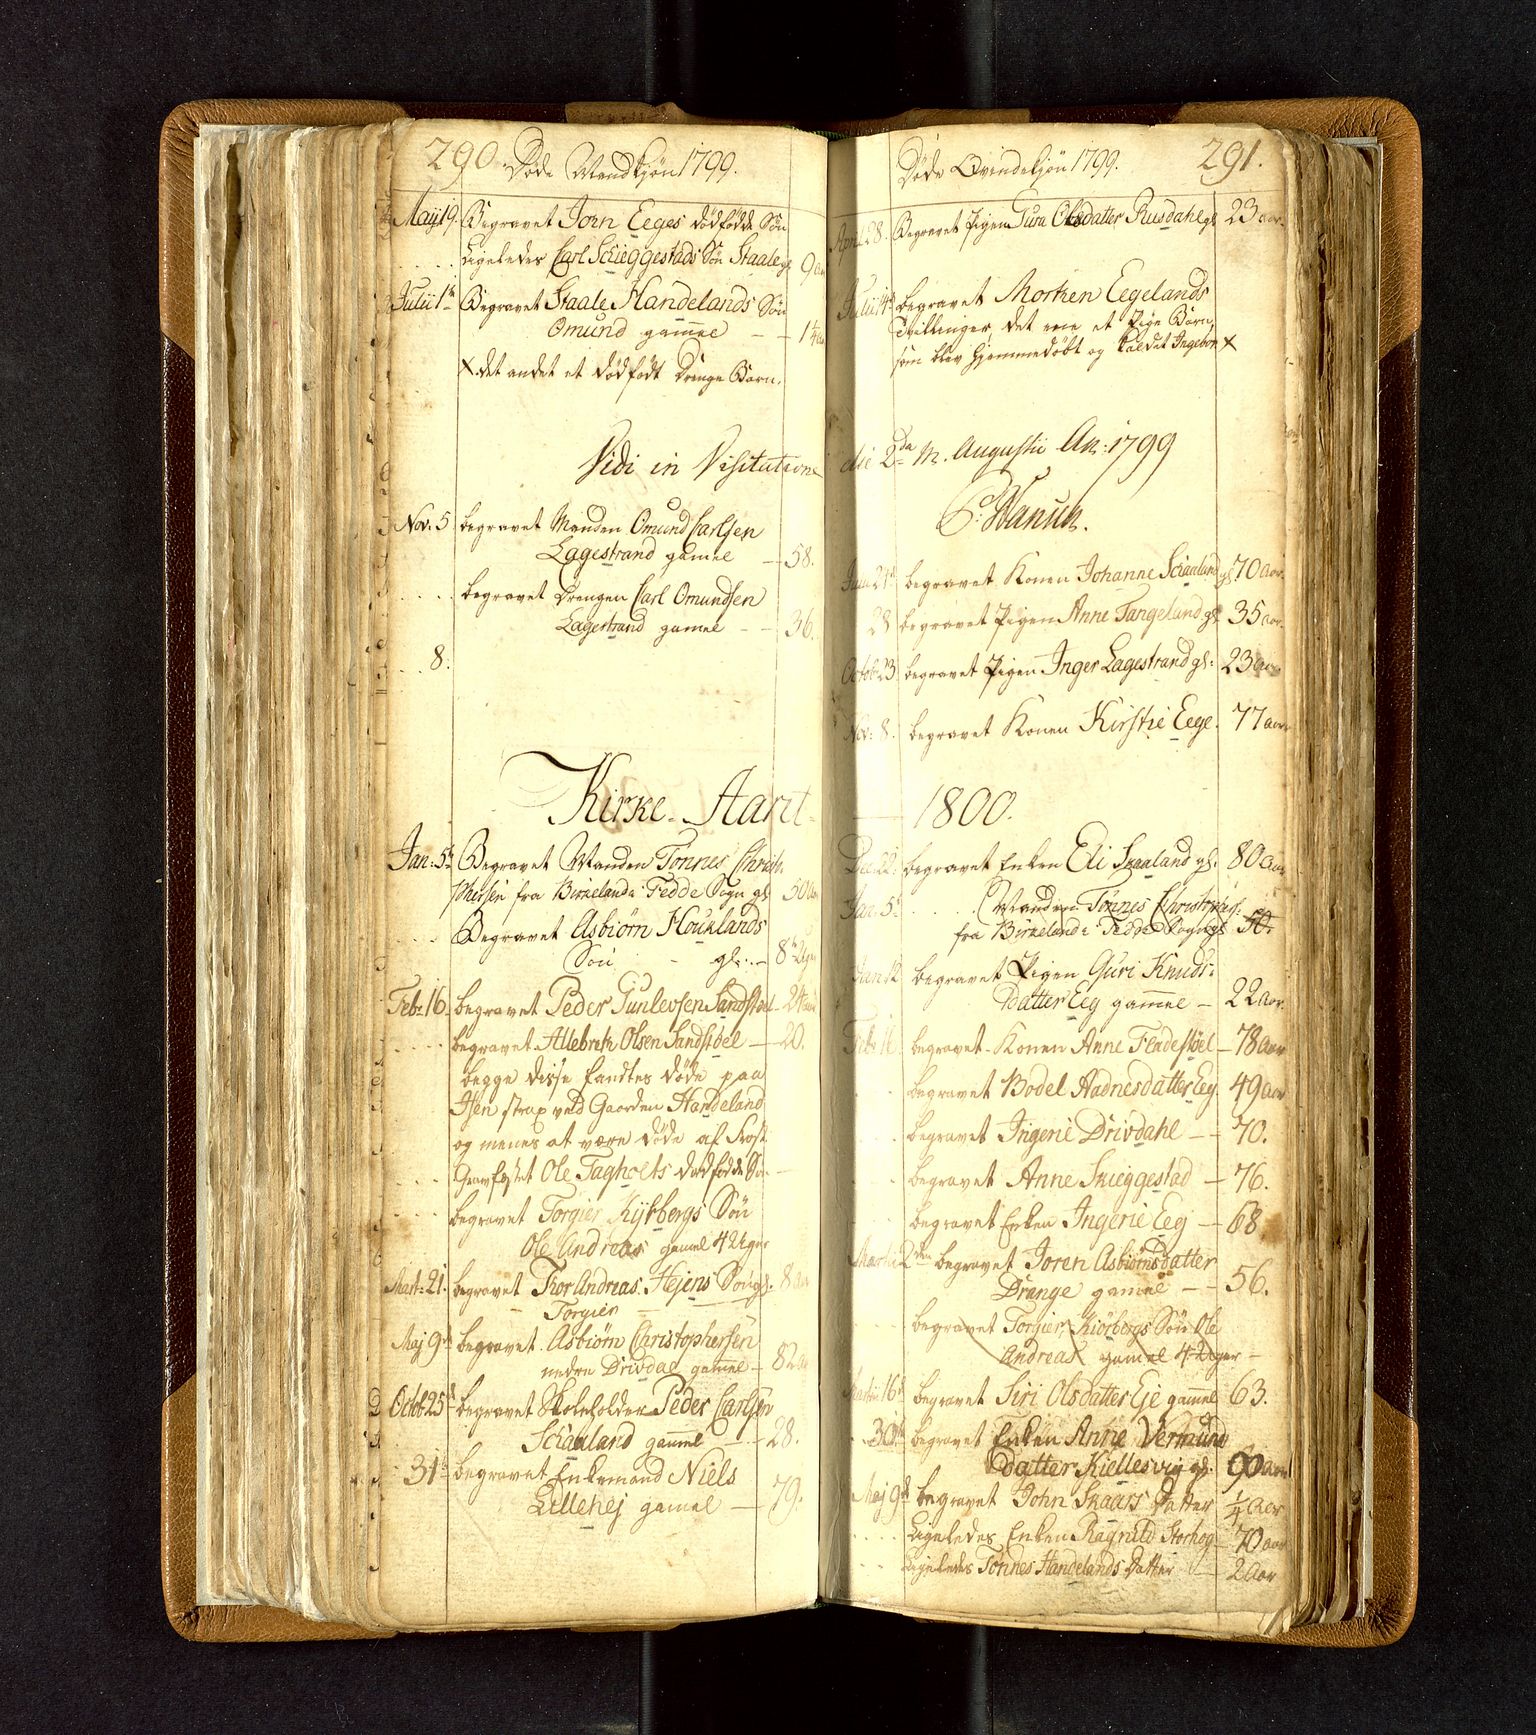 290. Døde Mandkjøn 1799.
Maji 19. Begravet Jorn Eeges dødfødde Søn
. . . . Ligeledes Carl Schieggestads Søn Staale gl 9 aar
Julii 1te Begravet Staale Handelands Søn
Omund gammel — 1 1/4 aar
X. det andet et dødfødt Drenge Barn.
Vidi in Visitatione
Nov: 5 begravet Manden Omund Carlsen
Lagestrand gamel — 58.
. . . . begravet Drengen Carl Omundsen
Lagestrand gamel — 36.
. . 8.
Kirke-Aaret
Jan: 5te Begravet Manden Tønnes Christo-
phersen fra Birkeland i Fedde Sogn gl 50 aar
. . . . Begravet Asbiørn Houklands
Søn - gl: — 8te Uger
Febr 16. begravet Peder Gunlevsen Sandstøel — 24 aar
. . . . begravet Allebrek Olsen Sandstøel — 20.
begge disse fandtes døde paa
Isen strax ved Gaarden Handeland
og menes at være døde af Frost.
. . . . Gravfæstet Ole Tagholts dødfødde Søn —
. . . . begravet Torgier Kykbergs Søn
Ole Andreas gamel 4 Uger
Mart: 21. begravet Thor Andreas Hejens Søn gl: 8 aar
Torgier
Maj 9de begravet Asbiørn Christophersen
nedre Drivdal gammel — 82 aar
Octob: 25de begravet Skoleholder Peder Carlsen
Schaaland gammel — 28.
31te begravet Enkemand Niels
Lillehej gamel — 79.
Døde Qvindekjøn 1799. 291.
April 28. Begravet Pigen Gura Olsdatter Rusdahl gl 23 aar.
Julii 14de begravet Morten Eegelands
Tvillinger, det ene et Pige Barn,
som blev hjemmedøbt og kaldet Ingebor X
die 2da M. Augustii An: 1799
P: Hansen.
21de begravet Konen Johanne Schaaland gl 70 aar.
28 begravet Pigen Anne Tangeland gl 35 aar.
Octob: 23 begravet Pigen Inger Lagestrand gl: 23 aar
Nov: 8. begravet Konen Kirstie Eege. 77 aar
1800.
Dec: 22. begravet Enken Eli Skaaland gl: 80 aar
Jan: 5te . . . . Manden Tønnes Christophers:
fra Birkeland i Fedde Sogn gl 50.
Jan: 12 begravet Pigen Guri Knuds-
datter Eeg gammel — 22 aar.
Febr 16. begravet Konen Anne Fendestøel — 78 aar
begravet Bodel Aadnesdatter Eeg. 49 aar
begravet Ingerie Drivdahl — 70.
begravet Anne Skieggestad — 76.
begravet Enken Ingerie Eeg — 68
Martii 2den begravet Joren Asbiørnsdatter
Drange gamel — 56.
begravet Torgier Kiörbergs Søn Ole
Andreas gamel 4 Uger —
Martii 16de begravet Siri Olsdatter Eje gammel 63.
30te begravet Enken Anne Vermund
datter Kiellesvig gl. 90 aar
Maj 9de begravet John Skaars Datter 1/4 aar
. . . . Ligeledes Enken Ragnild Storhog 70 aar
. . . Ligeledes Tønnes Handelands Datter — 2 aar